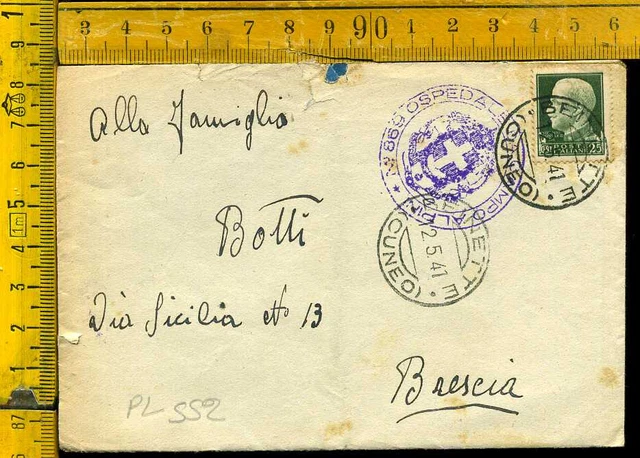 Alla Famiglia
Botti
Via Sicilia No 13
Brescia
PL 552
No 869 OSPEDALE CAMPO ALPINI
POSTE ITALIANE
25
(CUNEO)
12.5.41
3 4 5 6 7 8 9 90 1 2 3 4 5 6
1 9 8 7 6 5 1m 4 3 2 1 87